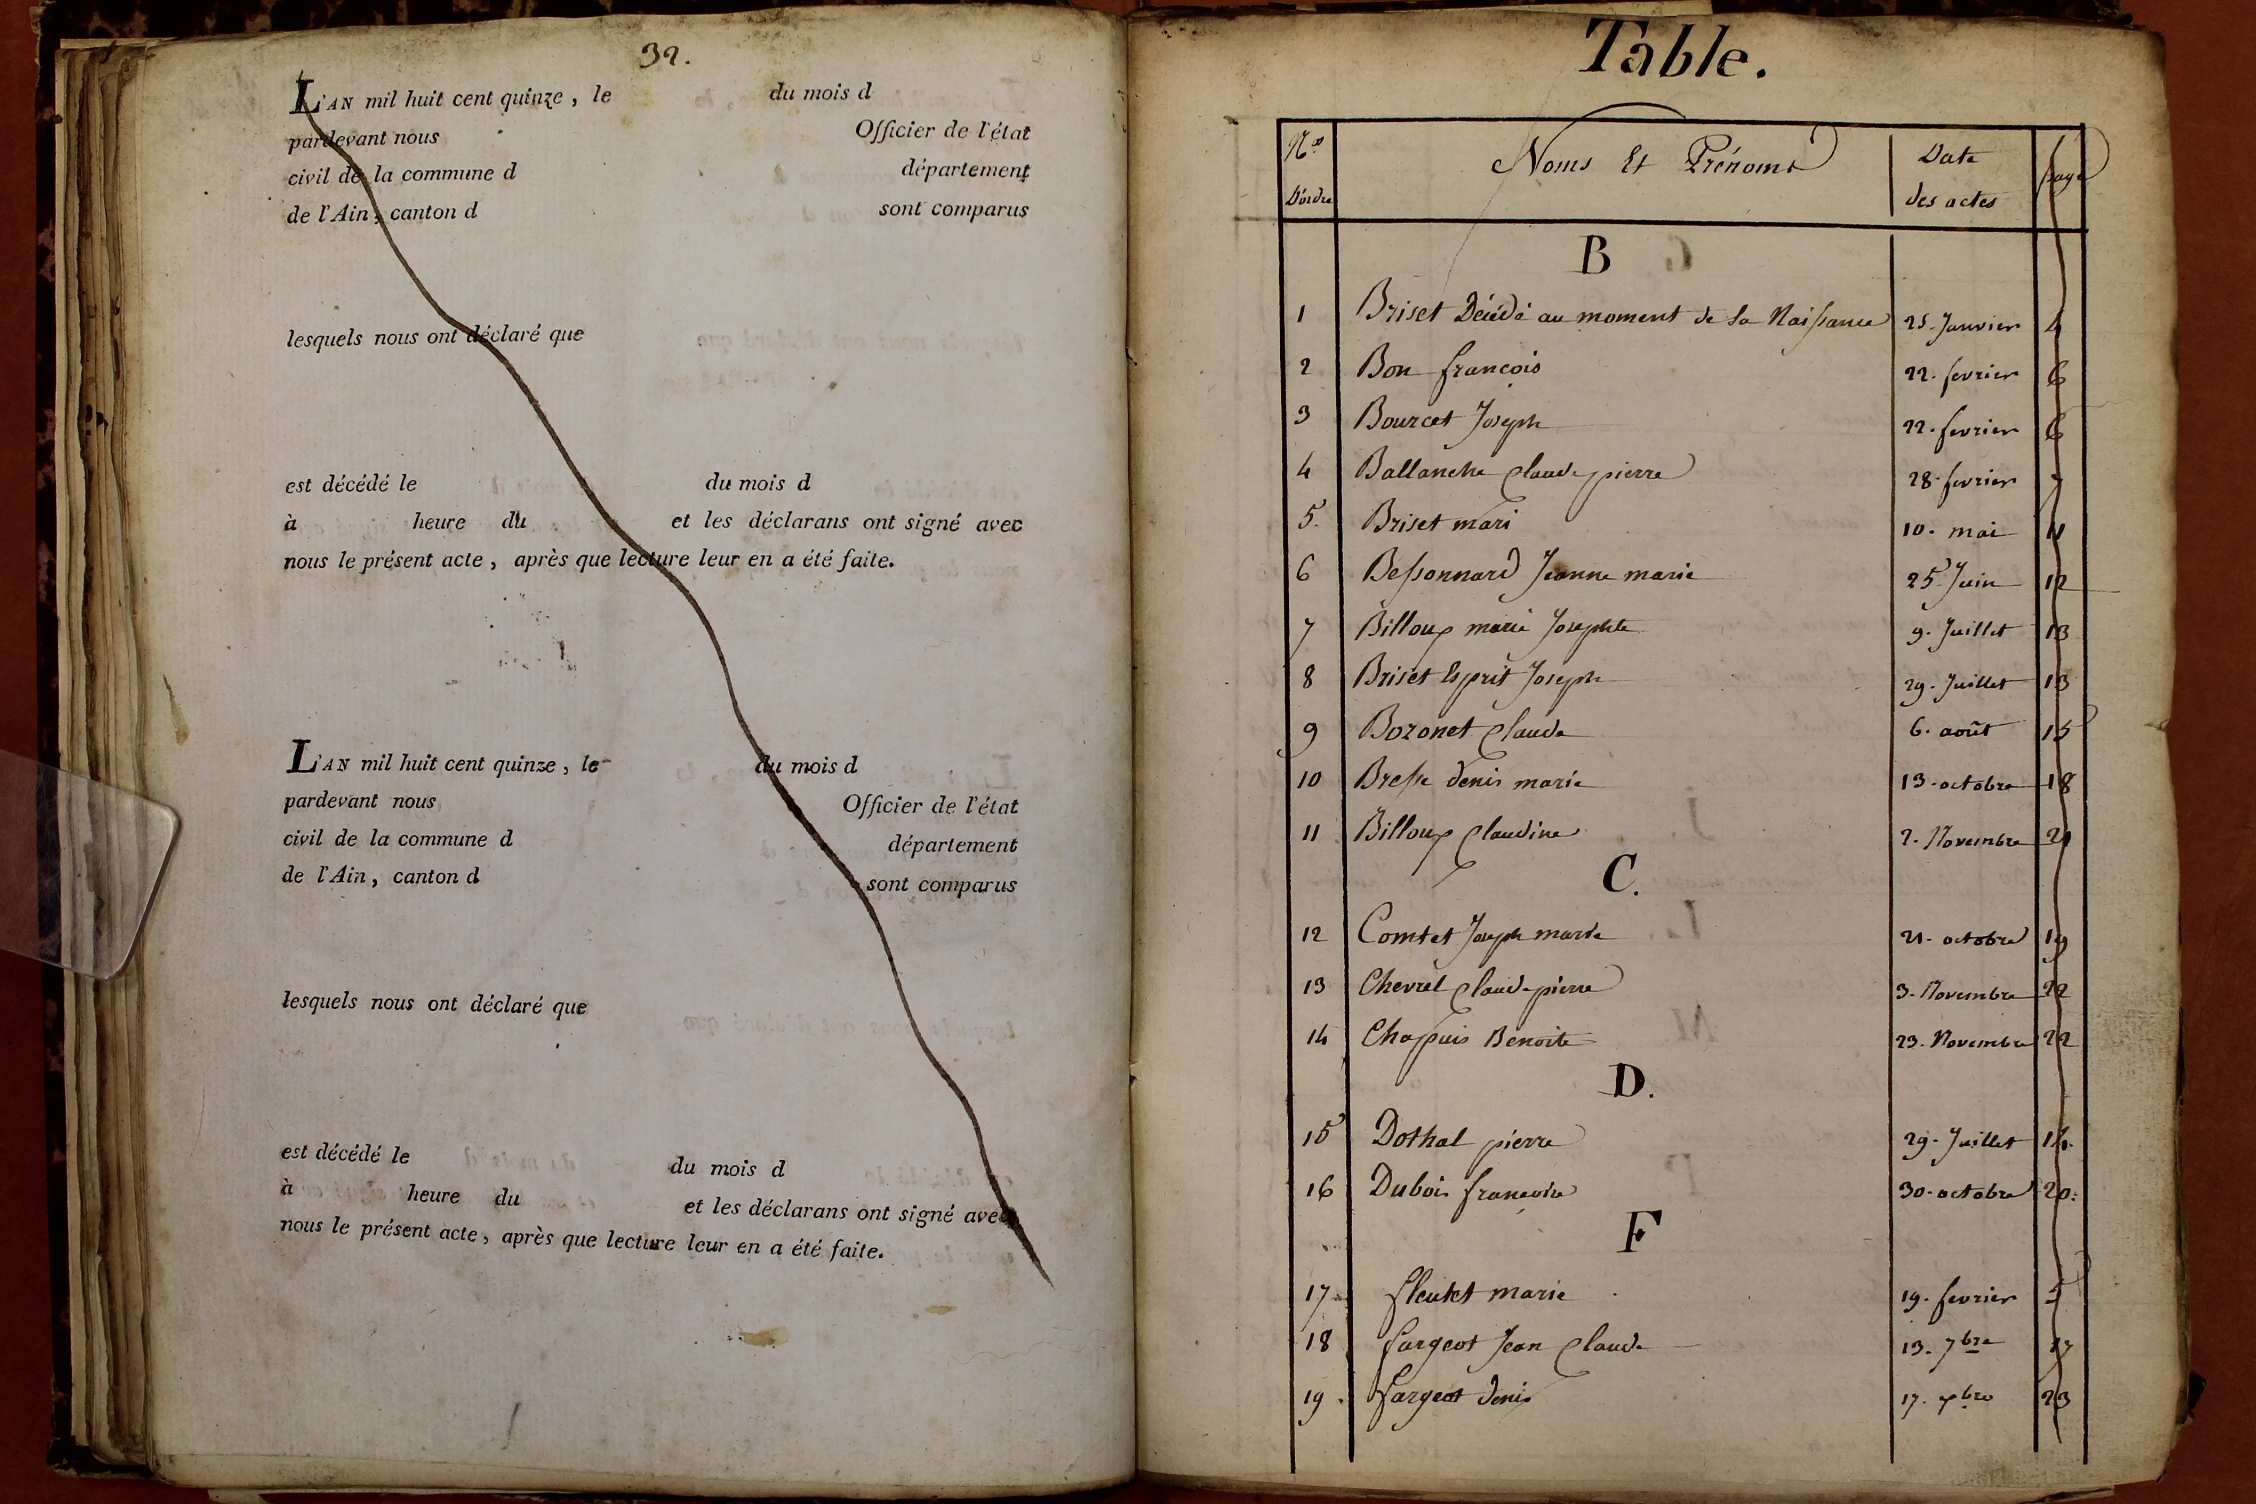 32.
L'AN mil huit cent quinze, le du mois d
pardevant nous Officier de l'état
civil de la commune d département
de l'Ain, canton d sont comparus
lesquels nous ont déclaré que
est décédé le du mois d
à heure du et les déclarans ont signé avec
nous le présent acte, après que lecture leur en a été faite.
L'AN mil huit cent quinze, le du mois d
pardevant nous Officier de l'état
civil de la commune d département
de l'Ain, canton d sont comparus
lesquels nous ont déclaré que
est décédé le du mois d
à heure du et les déclarans ont signé avec
nous le présent acte, après que lecture leur en a été faite.
Table.
Nos D'ordre Noms Et Prénoms Date des actes page
B
1 Briset Décédé au moment de sa Naissance 25. Janvier 4
2 Bon francois 22. fevrier 6
3 Bourcet Joseph 22. fevrier 6
4 Ballanche Claude pierre 28. fevrier 7
5. Briset mari 10. mai 11
6 Bessonnard Jeanne marie 25 Juin 12
7 Billoux marie Josephte 9. Juillet 13
8 Briset Esprit Joseph 29. Juillet 13
9 Bozonet Claude 6. août 15
10 Bresse denis marie 13. octobre 18
11 Billoux Claudine 2. Novembre 21
C.
12 Comtet Joseph marie 21. octobre 19
13 Chevrel Claude pierre 3. Novembre 22
14 Chapuis Benoite 23. Novembre 22
D.
15 Dothal pierre 29. Juillet
16 Dubois francoise 30. octobre 20.
F
17 fleutet marie 19. fevrier 5
18 fargeot Jean Claude 13. 7bre 17
19. fargeot denis 17. xbre 23